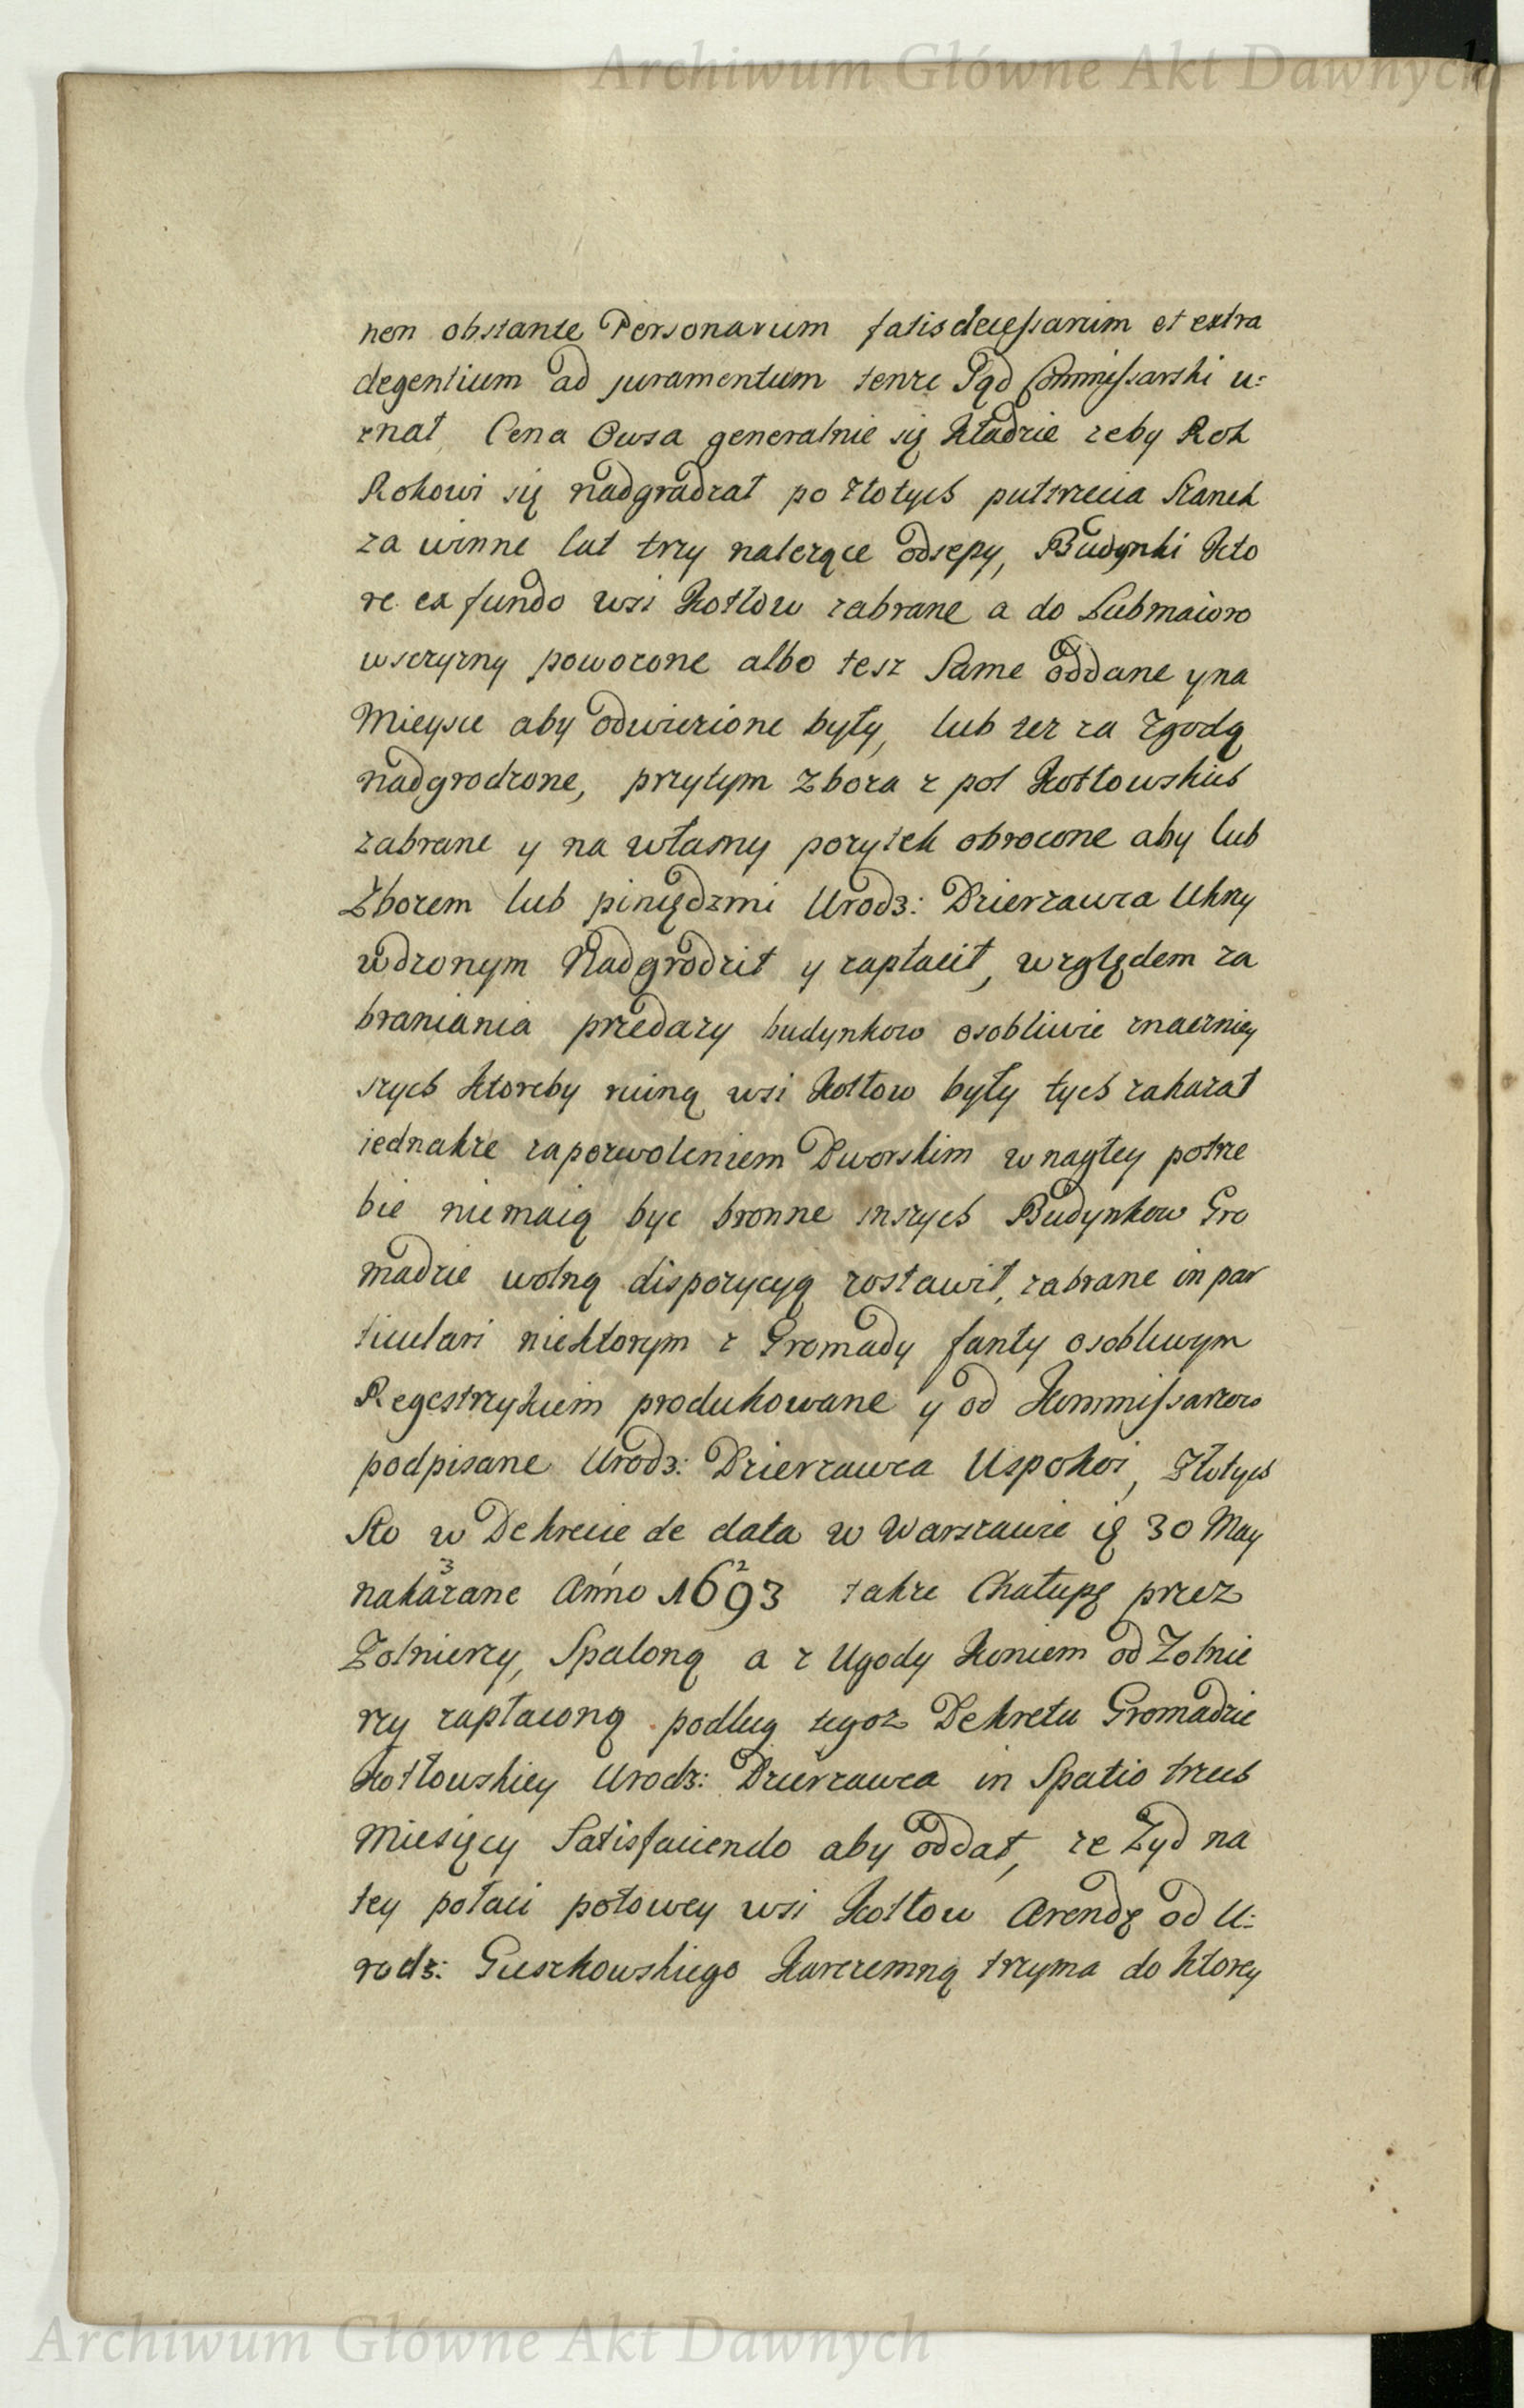 Archiwum Główne Akt Dawnych
non obstante Personarum fatis decessarum et extra
degentium ad juramentum tenze Sąd Commissarski u:
znał, Cena Owsa generalnie się kładzie zeby Rok
Rokowi się nadgradzał po złotych pułtrzecia Kanek
za winne lat trzy nalezące odsepy, Budynki kto
re ex fundo wsi Kotłow zabrane a do Submaioro
wsczyzny powozone albo tesz Same oddane y na
Mieysce aby odwiezione były, lub tez za Zgodą
nadgrodzone, przytym zboza z pol Kotłowskich
zabrane y na własny pozytek obrocone aby lub
Zbozem lub piniędzmi Urodz: Dzierzawca Ukrzy
wdzonym Nadgrodził y zapłacił, względem za
braniania przedazy budynkow osobliwie znaczniey
szych ktoreby ruiną wsi Kotłow były tych zakazał
iednakze zapozwoleniem Dworskim w nagłey potrze
bie niemaią byc bronne inszych Budynkow Gro
madzie wolną dispozycyą zostawił, zabrane in par
ticulari niektorym z Gromady fanty osobliwym
Regestrzykiem produkowane y od Kommissarzow
podpisane Urodz: Dzierzawca Uspokoi, Złotych
Sto w Dekrecie de data w Warszawie ię 30 May
nakazane Anno 1693 takze Chałupę przez
Zołnierzy, Spaloną a z Ugody Koniem od Zołnie
rzy zapłaconą podług tegoz Dekretu Gromadzie
Kotłowskiey Urodz: Dzierzawca in Spatio trzech
Miesięcy Satisfaciendo aby oddał, ze Zyd na
tey połaci połowey wsi Kotłow Arendę od U:
rodz: Gieszkowskiego Karczemną trzyma do ktorey
Archiwum Główne Akt Dawnych